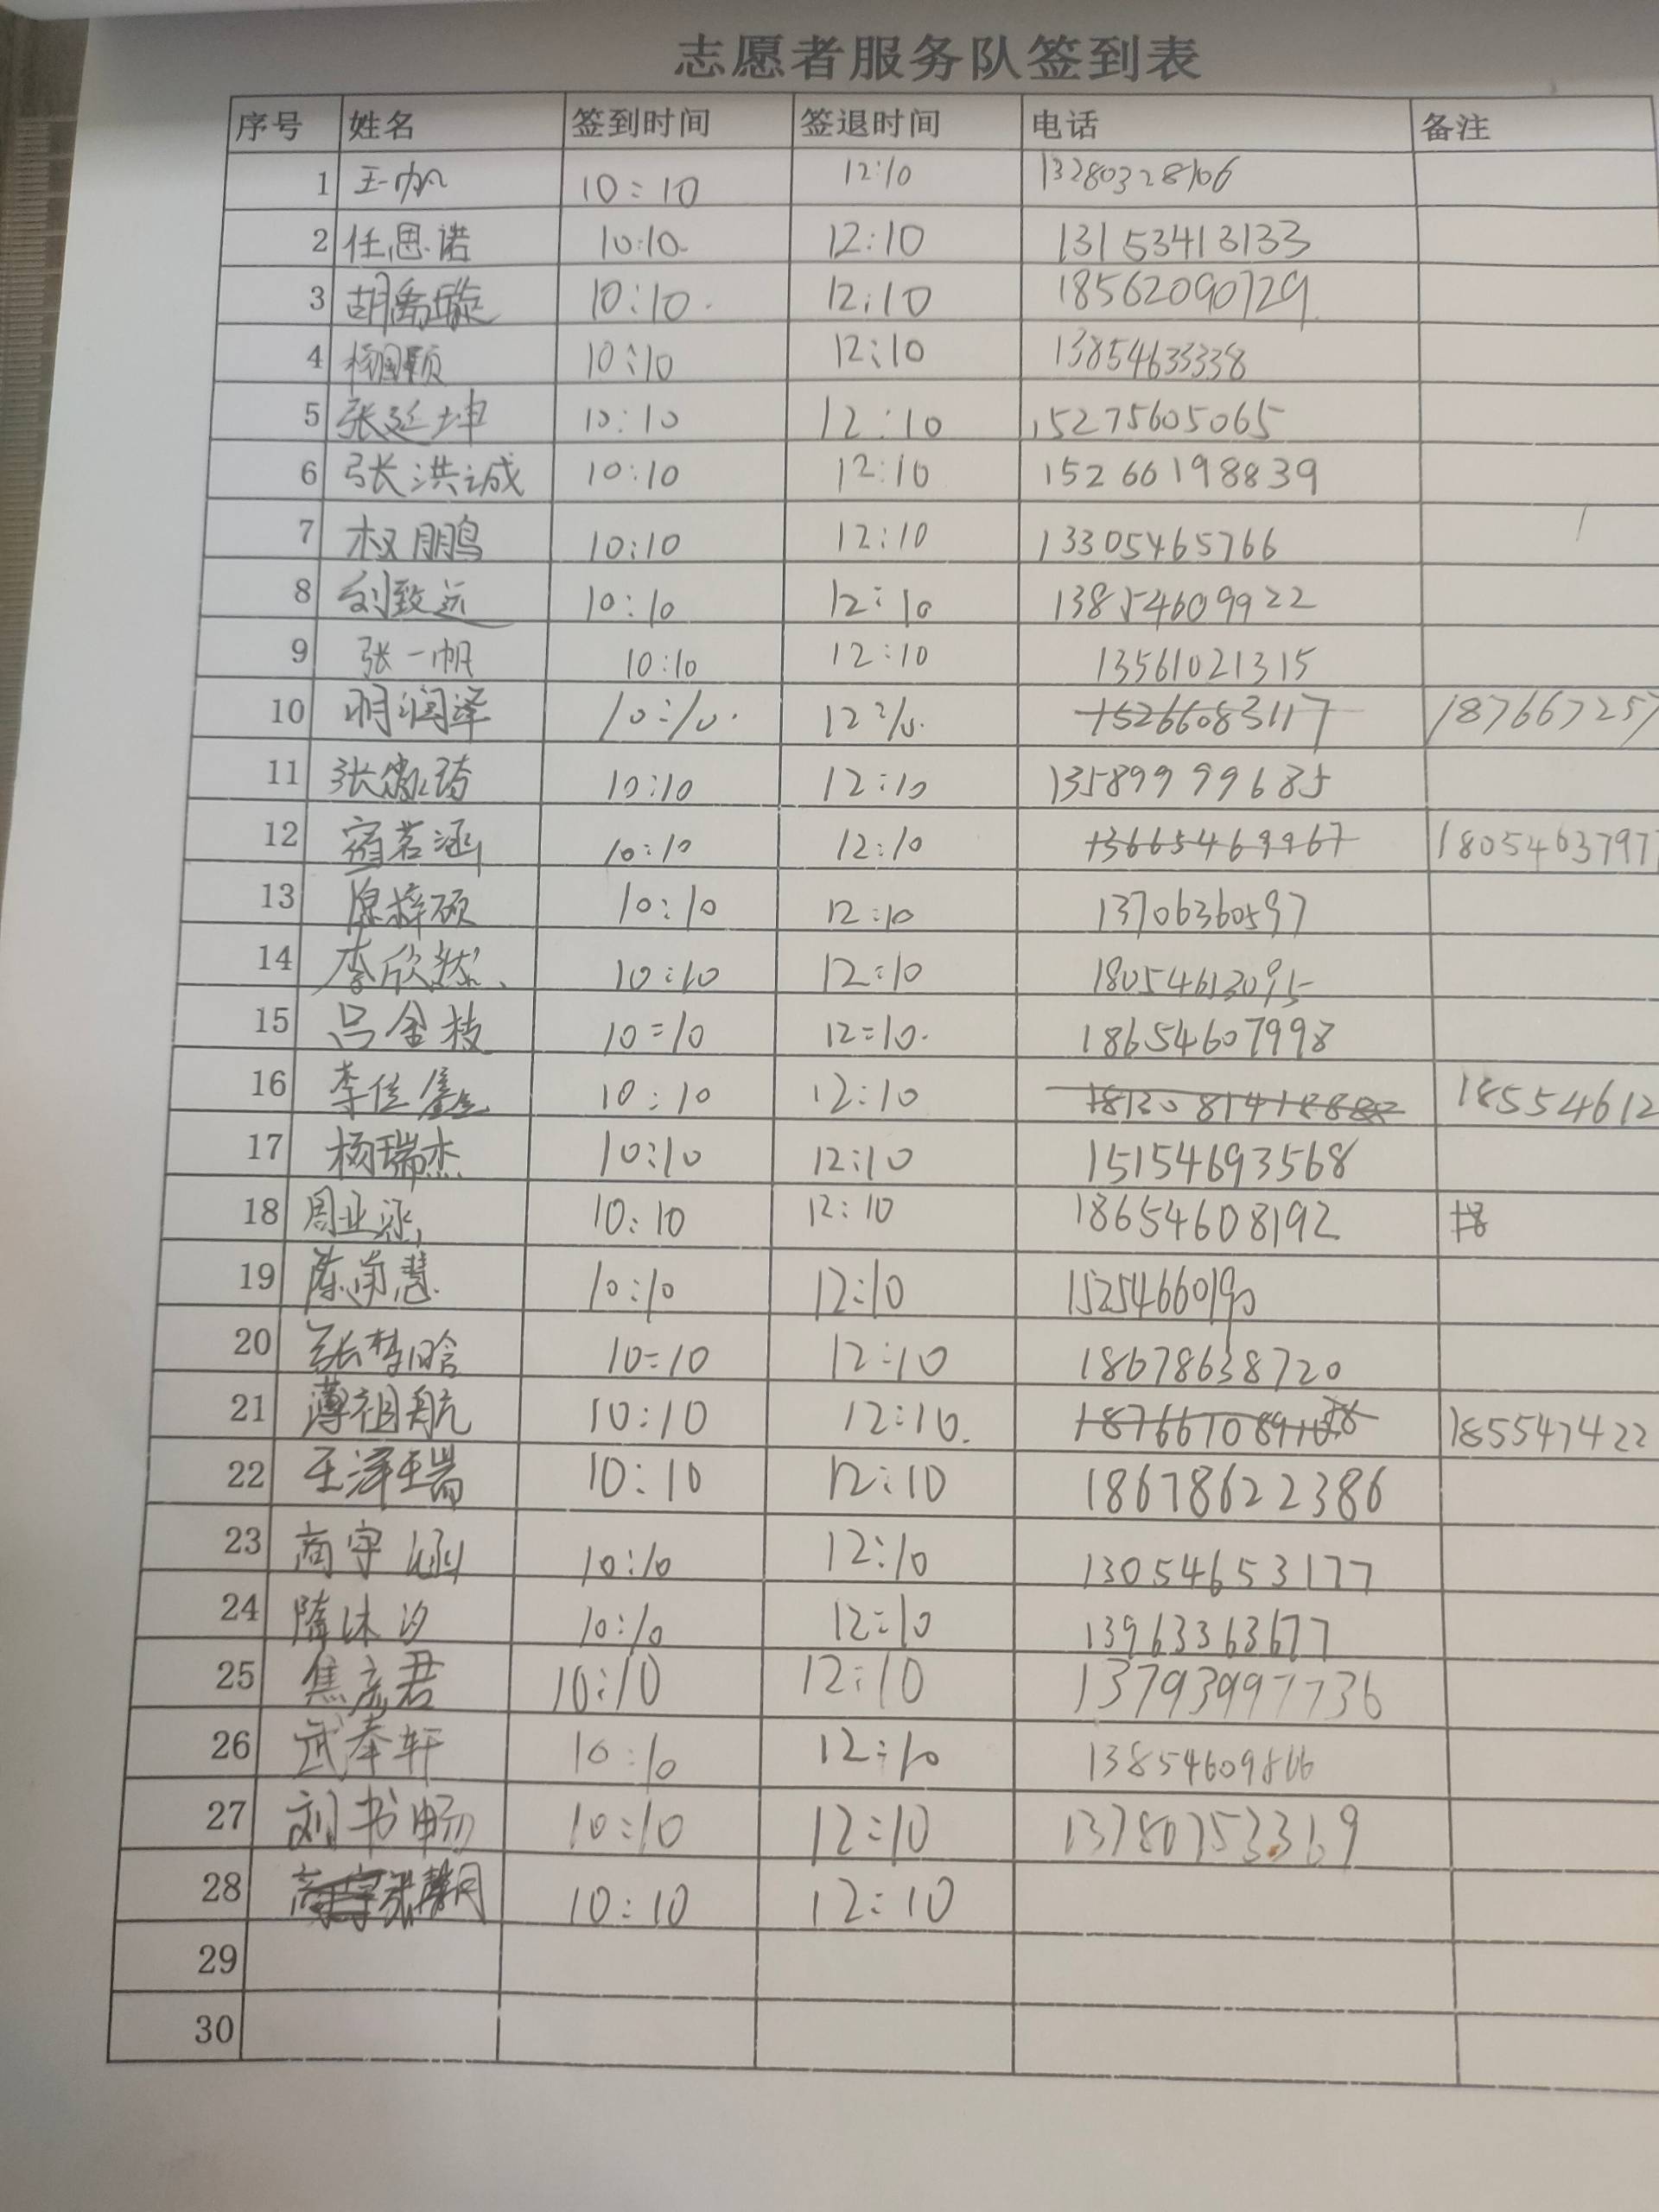 志愿者服务队签到表
序号 姓名 签到时间 签退时间 电话 备注
1 王帆 10:10 12:10 13280328106
2 任思诺 10:10 12:10 13153413133
3 胡禹璇 10:10 12:10 18562090729
4 10:10 12:10 13854633338
5 张延坤 10:10 12:10 15275605065
6 张洪诚 10:10 12:10 15266198839
7 权鹏 10:10 12:10 13305465766
8 刘致远 10:10 12:10 13854609922
9 张一帆 10:10 12:10 13561021315
10 明润泽 10:10 12:10 15266083117 1876672257
11 10:10 12:10 13589999685
12 宿茗涵 10:10 12:10 13665469967 18054637977
13 10:10 12:10 13706360597
14 李欣然 10:10 12:10 18054613095
15 吕金枝 10=10 12=10 18654607998
16 李佳鑫 10:10 12:10 18554612
17 杨瑞杰 10:10 12:10 15154693568
18 10:10 12:10 18654608192 18
19 10:10 12:10 15254660190
20 张梦晗 10=10 12:10 18678638720
21 薄祖航 10:10 12:10 185547422
22 王泽瑞 10:10 12:10 18678622386
23 商宇涵 10:10 12:10 13054653177
24 隋沐汐 10:10 12:10 13963363677
25 焦彦君 10:10 12:10 13793997736
26 武奉轩 10:10 12:10
27 刘书畅 10:10 12:10 13780753369
28 10:10 12:10
29
30